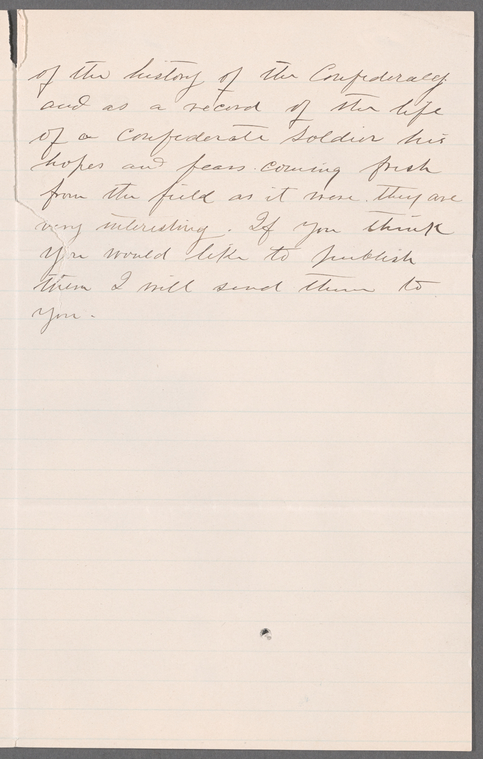 of the history of the Confederacy
and as a record of the life
of a Confederate soldier his
hopes and fears. coming fresh
from the field as it were. they are
very interesting. If you think
you would like to publish
them I will send them to
you.